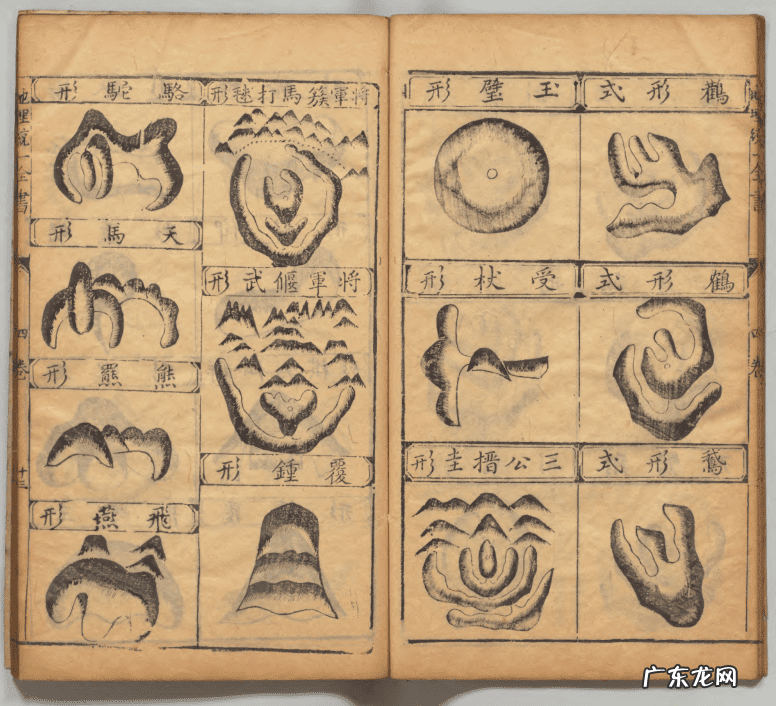 鸛形式
鶴形式
鵝形式
玉璧形
受杖形
三公搢圭形
将軍簇馬打毬形
将軍偃武形
覆鍾形
駱駝形
天馬形
熊羆形
飛燕形
地理統一全書
四卷
十三
广东龙网